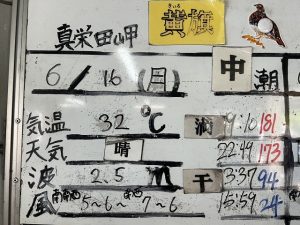 真栄田岬 黄旗
きいろ
6/16(日) 中潮
気温 32℃ 満 9:10 181
天気 晴 22:49 173
波 2.5m 干 3:37 94
風 南南西 5~6~ 南西 7~6 15:59 24